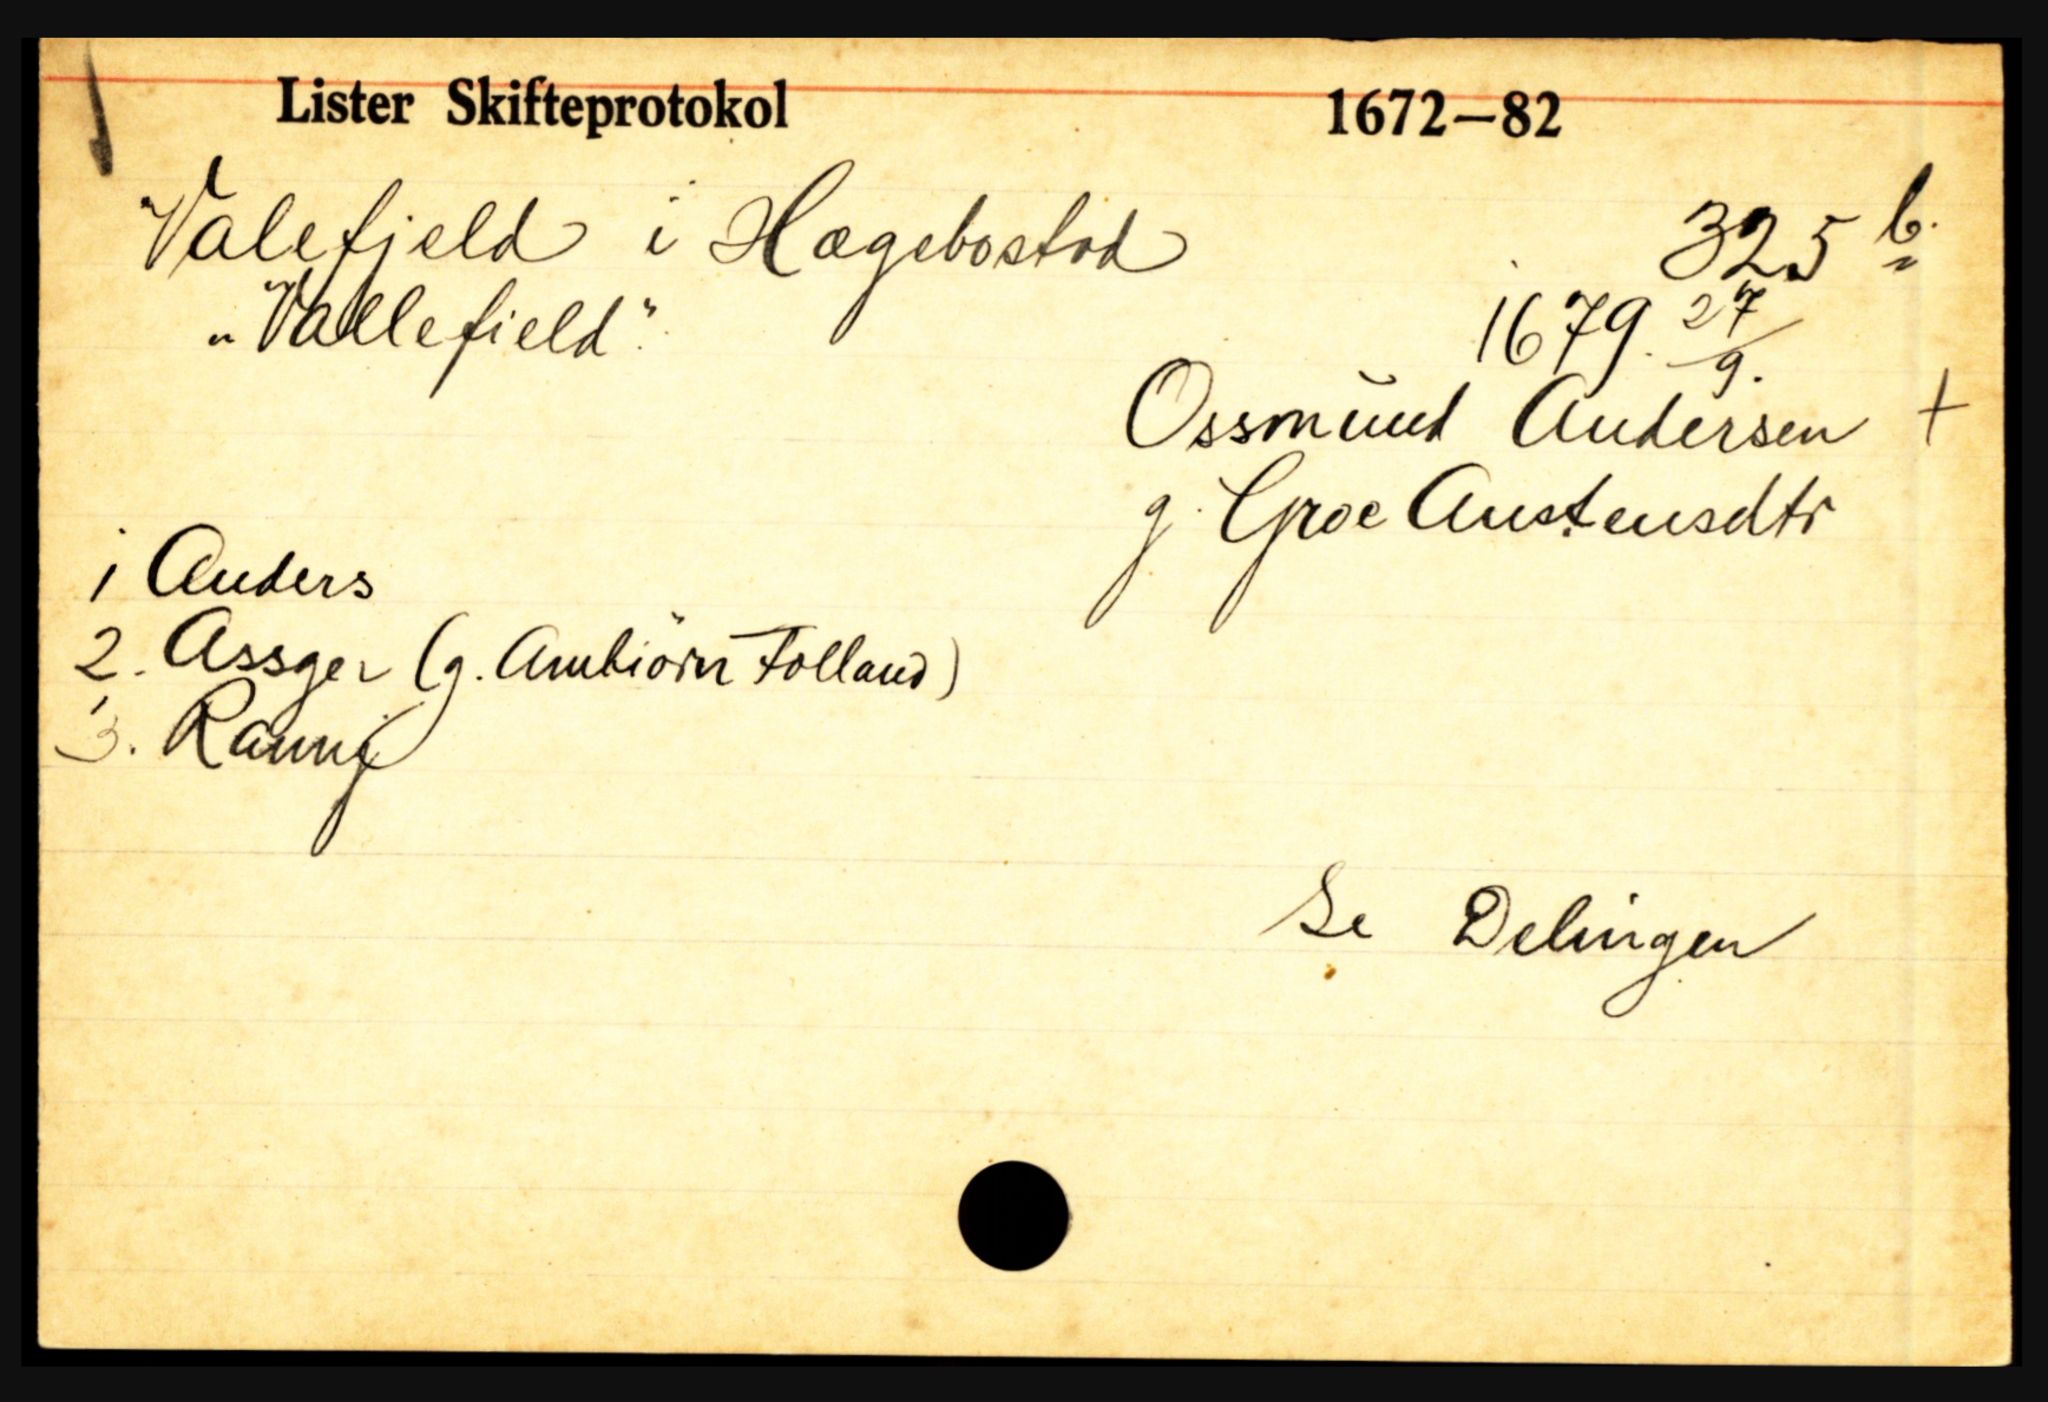 Lister Skifteprotokol 1672—82
Valefjeld i Hægebostad 325 b.
"Vallefield". 1679. 27/9.
Ossmund Andersen +
g. Groe Austensdtr
1 Anders
2. Assger (g. Ambiörn Folland)
3. Rannj
Se Delingen